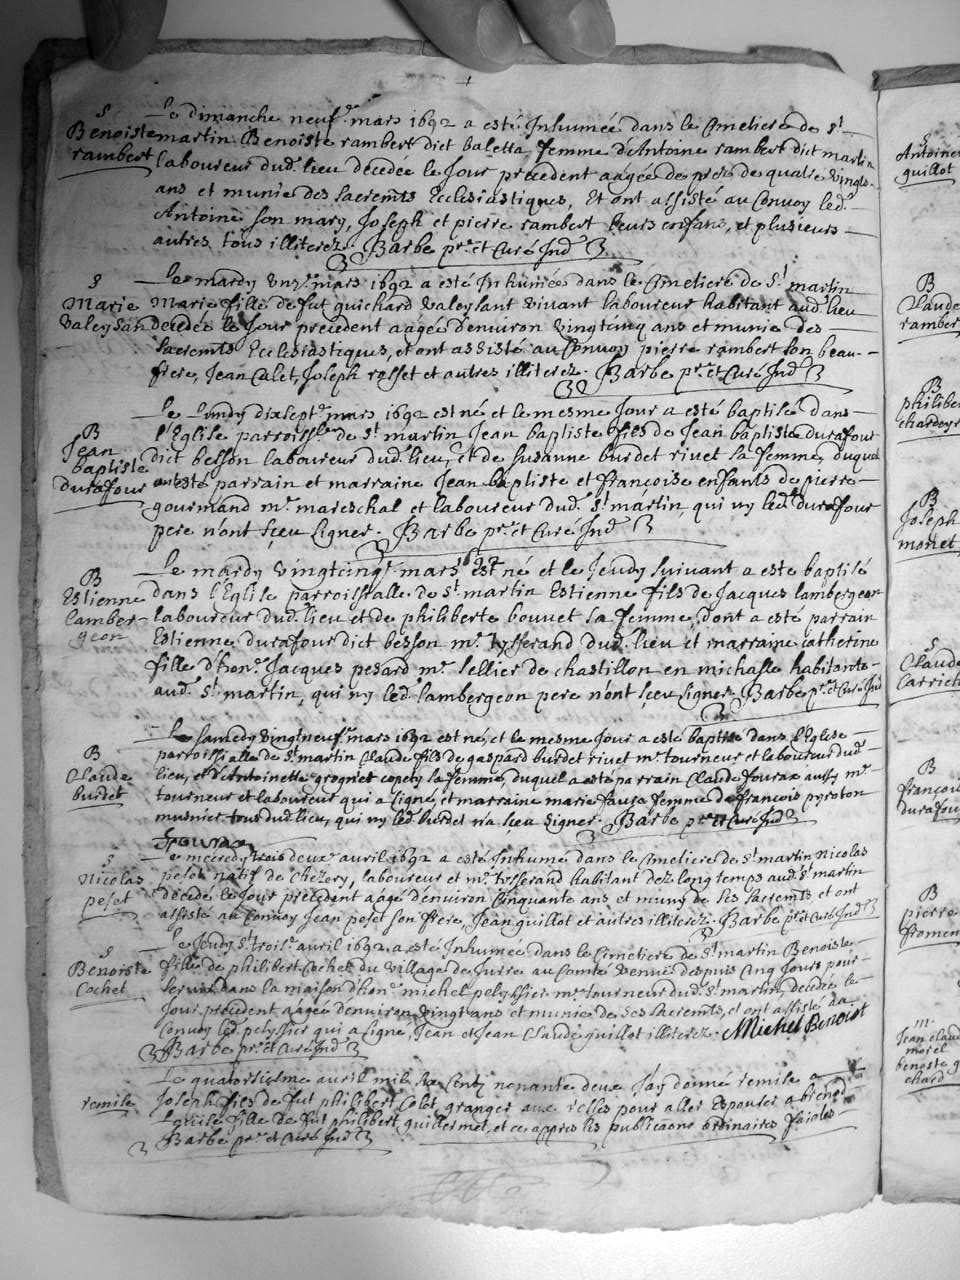 S
Benoiste
rambert
Le dimanche neufe mars 1692 a esté Inhumée dans le Cimetiere de St
martin Benoiste rambert dict baletta, femme d'Antoine rambert dict martin
laboureur dud. lieu decedée le Jour precedent aagée de pres de quatre vingts
ans et munie des sacremts Ecclesiastiques, Et ont assisté au Convoy led.
Antoine son mary, Joseph et pierre rambert leurs enfans, et plusieurs
autres tous illiterez. Barbe ptre et Curé Ind
S
Marie
valeysan
Le mardy mars 1692 a esté Inhumée dans le Cimetiere de St martin
Marie fille de fut guichard valeysant vivant laboureur habitant aud. lieu
decedée le Jour precedent aagée denviron vingtcinq ans et munie des
sacremts Ecclesiastiques, et ont assisté au Convoy pierre rambert son beau
frere, Jean Calet, Joseph rosset et autres illiterez. Barbe ptre et Curé Ind
B
Jean
baptiste
durafour
Le Lundy dixsepte mars 1692 est né et le mesme Jour a esté baptisé dans
l'Eglise parroissle de St martin Jean baptiste fils de Jean baptiste durafour
dict besson laboureur dud. lieu, et de susanne burdet rivet sa femme, duquel
ont esté parrain et marraine Jean baptiste et françoise enfants de pierre
gourmand me mareschal et laboureur dud. St martin, qui ny led. durafour
pere n'ont sçeu signer. Barbe ptre et Curé Ind
B
Estienne
lamber-
geon
Le mardy vingtcinqe mars 1692 est né et le Jeudy suivant a esté baptisé
dans l'Eglise parroissialle de St martin Estienne fils de Jacques lambergeon
laboureur dud. lieu et de philiberte bouvet sa femme, dont a esté parrain
Estienne durafour dict besson me tysserand dud. lieu et marraine catherine
fille d'hone Jacques pesard me sellier de chastillon en michaille habitante
aud. St martin, qui ny led. lambergeon pere n'ont sçeu signer. Barbe ptre et Curé Ind
B
Claude
burdet
Le samedy vingtneufe mars 1692 est né, et le mesme Jour a esté baptisé dans l'Eglise
parroissialle de St martin Claude fils de gaspard burdet rivet me tourneur et laboureur dud.
lieu, et d'Antoinette grogniet sa femme, duquel a esté parrain Claude fourax aussy me
tourneur et laboureur qui a signé, et marraine marie femme de françois pyroton
musnier tous dud. lieu, qui ny led. burdet n'a sçeu signer. Barbe ptre et Curé Ind
fourax
S
Nicolas
peset
Le mecredy deuxe avril 1692 a esté Inhumé dans le Cimetiere de St martin Nicolas
peset natif de Chezery, laboureur et me tisserand habitant dez long temps aud. St martin
decedé le Jour precedent aagé d'environ cinquante ans et muny de ses sacremts et ont
assisté au Convoy Jean peset son frere, Jean guillot et autres illiterez. Barbe ptre et Curé Ind
S
Benoiste
Cochet
Le Jeudy St troise avril 1692 a esté Inhumée dans le Cimetiere de St martin Benoiste
fille de philibert Cochet du village de Jurre au Comté venue despuis Cinq Jours pour
servir dans la maison d'hone michel pelyssier me tourneur dud. St martin, decedée le
Jour precedent, aagée d'environ vingt ans et munie de ses sacremts, et ont assisté au
Convoy led. pelyssier qui a signé, Jean et Jean Claude guillot illiterez. Michel Benoist
Barbe ptre et Curé Ind
remise
Le quatorsiesme avril mil six centz nonante deux J'ay donné remise a
Joseph fils de fut philibert Colet granger aux pour aller espouser a
Louise fille de fut philibert guillermet, et ce appres les publicaons ordinaires faictes
Barbe ptre et Curé Ind
S
Antoine
guillot
B
Claude
ramber
B
philiber
B
Joseph
monet
S
Claude
Carrich
B
françois
durafou
B
pierre
fromen
m.
Jean claud
morel
benoste g
chard